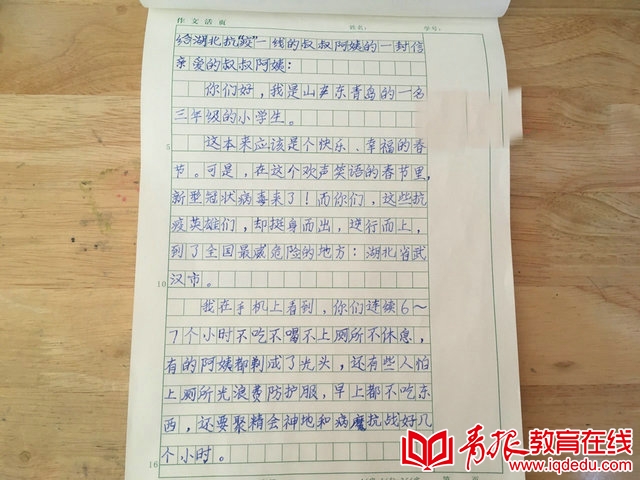 作文活页
姓名:
学号:
给湖北抗“疫”一线的叔叔阿姨的一封信
亲爱的叔叔阿姨:
你们好,我是山东青岛的一名
三年级的小学生。
5
这本来应该是个快乐、幸福的春
节。可是,在这个欢声笑语的春节里,
新型冠状病毒来了!而你们,这些抗
疫英雄们,却挺身而出,逆行而上,
到了全国最威危险的地方:湖北省武
10
汉市。
我在手机上看到,你们连续6~
7个小时不吃不喝不上厕所不休息,
有的阿姨都剃成了光头,还有些人怕
上厕所光浪费防护服,早上都不吃东
西,还要聚精会神地和病魔抗战好几
16
个小时。
青报教育在线
www.iqdedu.com